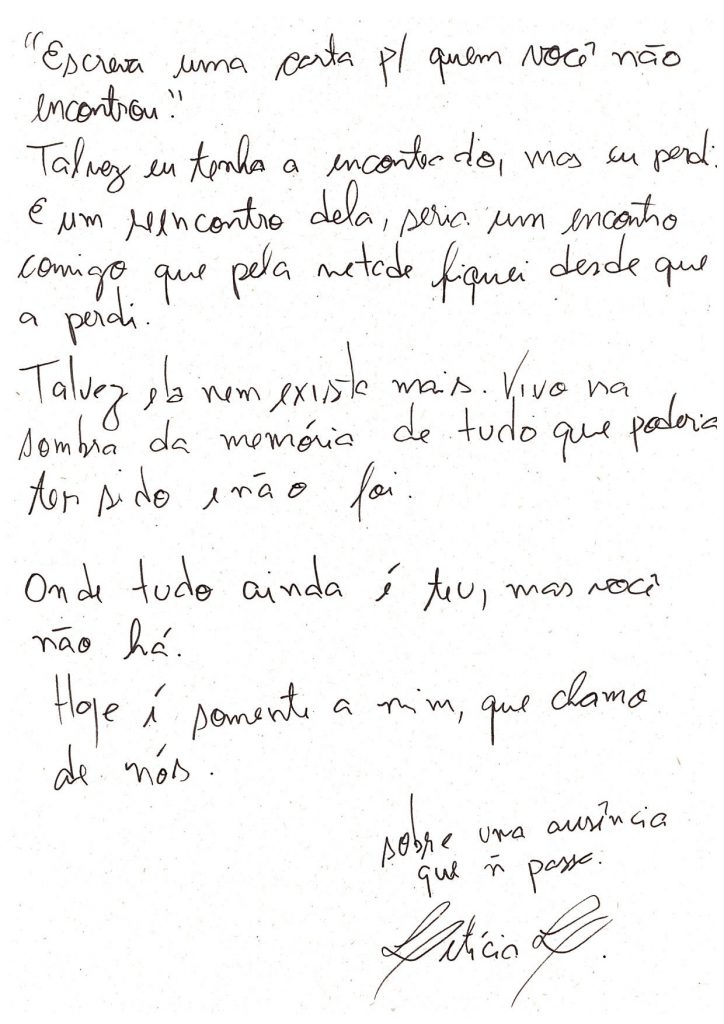 "Escreva uma carta p/ quem você não
encontrou."
Talvez eu tenha a encontrado, mas eu perdi.
E um reencontro dela, seria um encontro
comigo que pela metade fiquei desde que
a perdi.
Talvez ela nem exista mais. Vivo na
sombra da memória de tudo que poderia
ter sido e não foi.
Onde tudo ainda é teu, mas você
não há.
Hoje é somente a mim, que chamo
de nós.
sobre uma ausência
que ñ passa.
Letícia L.